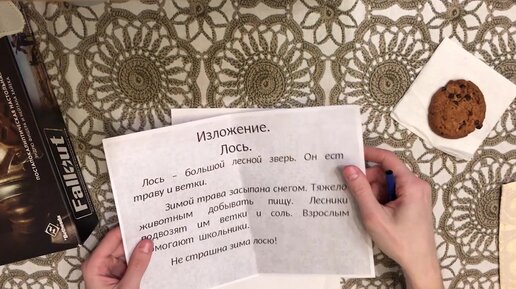 Изложение.
Лось.
Лось – большой лесной зверь. Он ест
траву и ветки.
Зимой трава засыпана снегом. Тяжело
животным добывать пищу. Лесники
подвозят им ветки и соль. Взрослым
помогают школьники.
Не страшна зима лосю!
Fallout